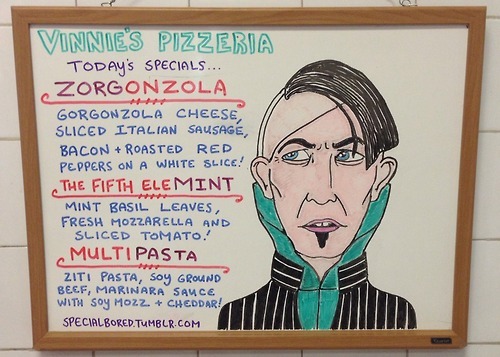 VINNIE'S PIZZERIA
TODAY'S SPECIALS...
ZORGONZOLA
GORGONZOLA CHEESE,
SLICED ITALIAN SAUSAGE,
BACON + ROASTED RED
PEPPERS ON A WHITE SLICE!
THE FIFTH ELEMINT
MINT BASIL LEAVES,
FRESH MOZZARELLA AND
SLICED TOMATO!
MULTIPASTA
ZITI PASTA, SOY GROUND
BEEF, MARINARA SAUCE
WITH SOY MOZZ + CHEDDAR!
SPECIALBORED.TUMBLR.COM